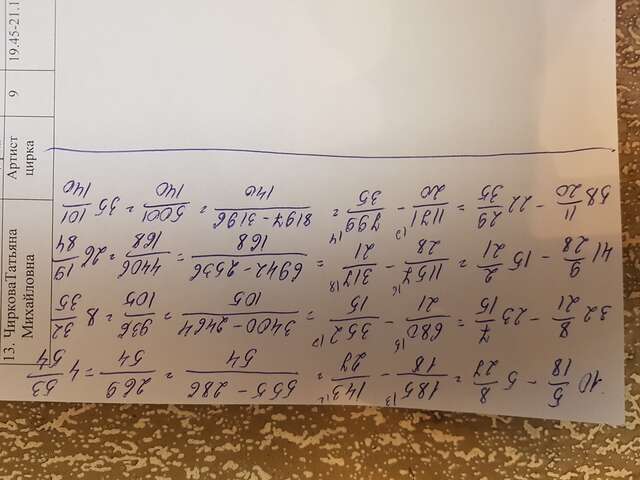 13. ЧирковаТатьяна Михайловна Артист цирка 9 19.45-21.1
10 5/18 - 5 8/27 = 185/18 |3 - 143/27 |2 = 555-286/54 = 269/54 = 4 53/54
32 8/21 - 23 7/15 = 680/21 |5 - 352/15 |7 = 3400-2464/105 = 936/105 = 8 32/35
41 9/28 - 15 2/21 = 1157/28 |6 - 317/21 |8 = 6942-2536/168 = 4406/168 = 26 19/84
58 11/20 - 22 29/35 = 1171/20 |7 - 799/35 |4 = 8197-3196/140 = 5001/140 = 35 101/140